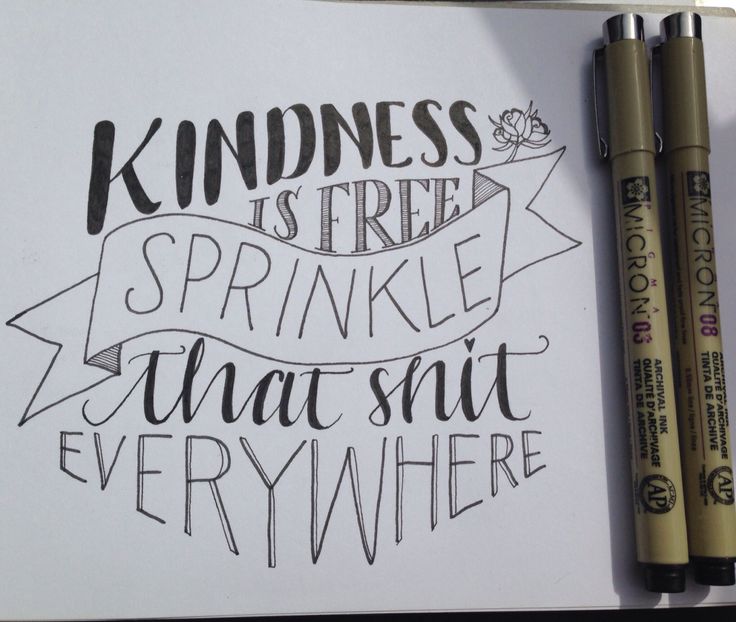 KINDNESS
IS FREE
SPRINKLE
that shit
EVERYWHERE
PIGMA
MICRON 03
ARCHIVAL INK
QUALITÉ D'ARCHIVAGE
TINTA DE ARCHIVE
AP
MICRON 08
ARCHIVAL INK
QUALITÉ D'ARCHIVAGE
TINTA DE ARCHIVE
AP